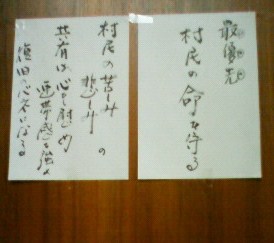 最優先
村民の命を守る
村民の苦しみ
悲しみの
共有は心を慰め
連帯感を強め
復旧の心棒になる